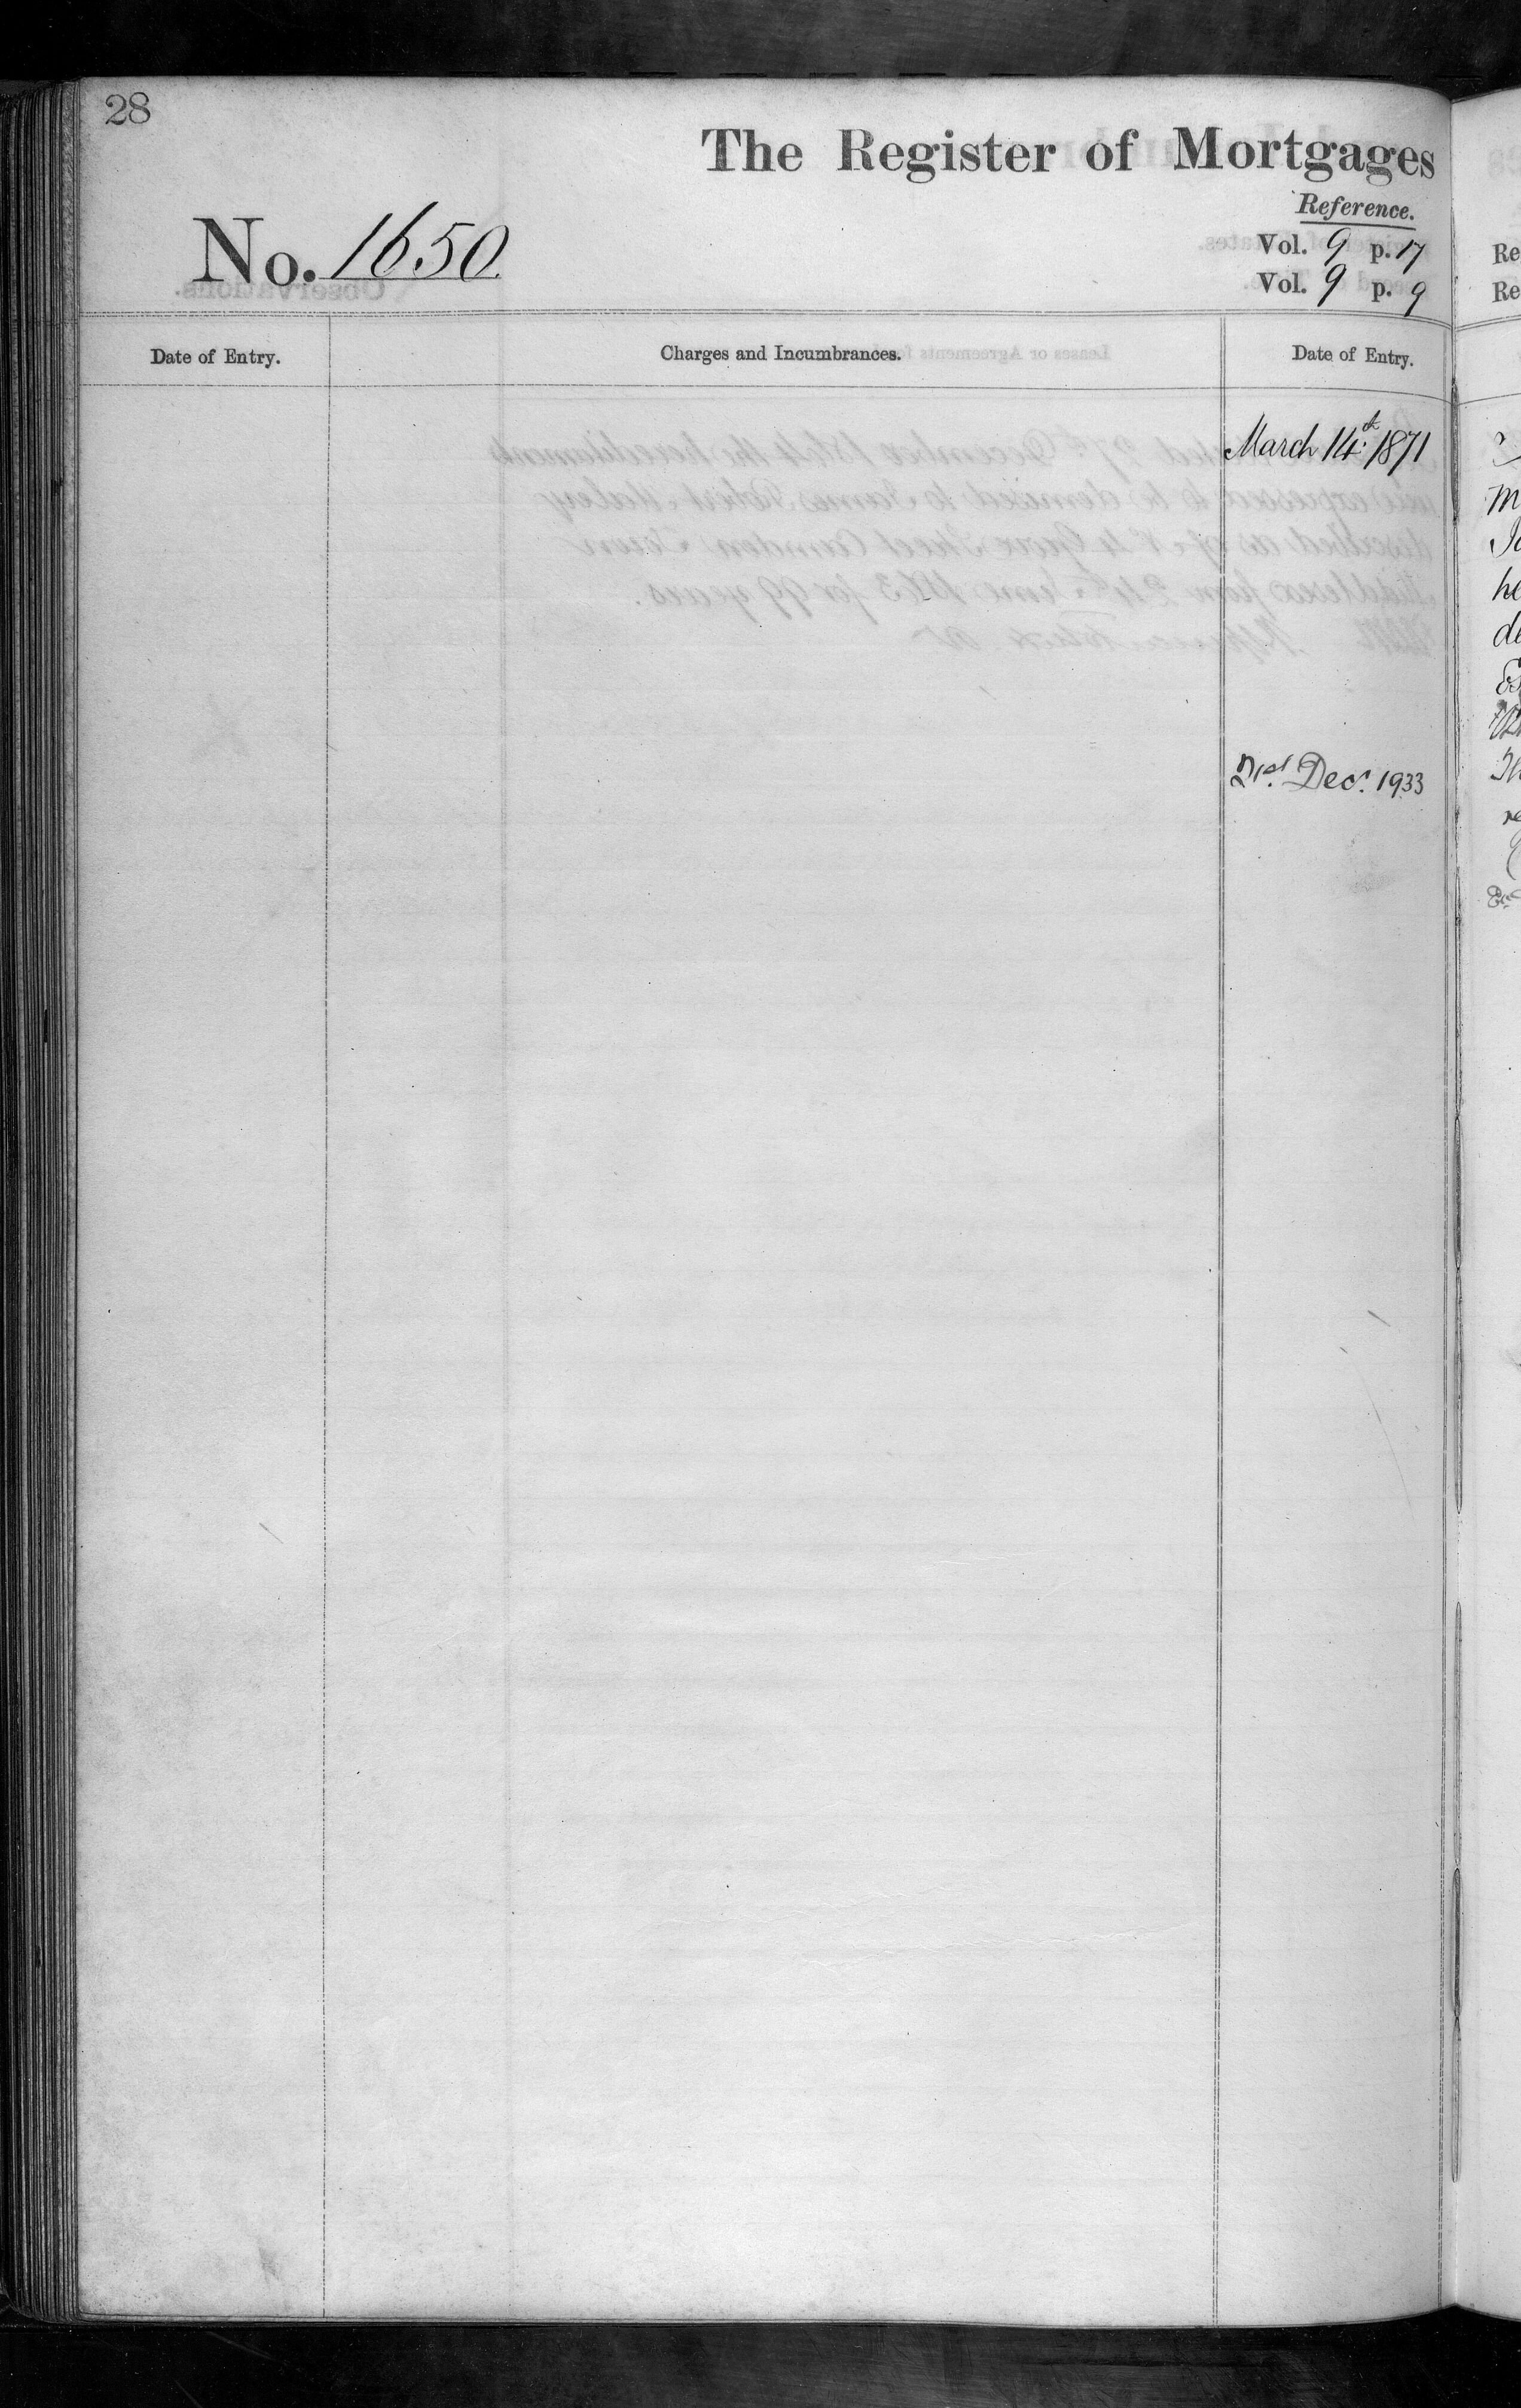 28
The Register of Mortgages
Reference.
No. 1650
Vol. 9 p. 17
Vol. 9 p. 9
Date of Entry. Charges and Incumbrances. Date of Entry.
March 14th 1871
21st Decr. 1933